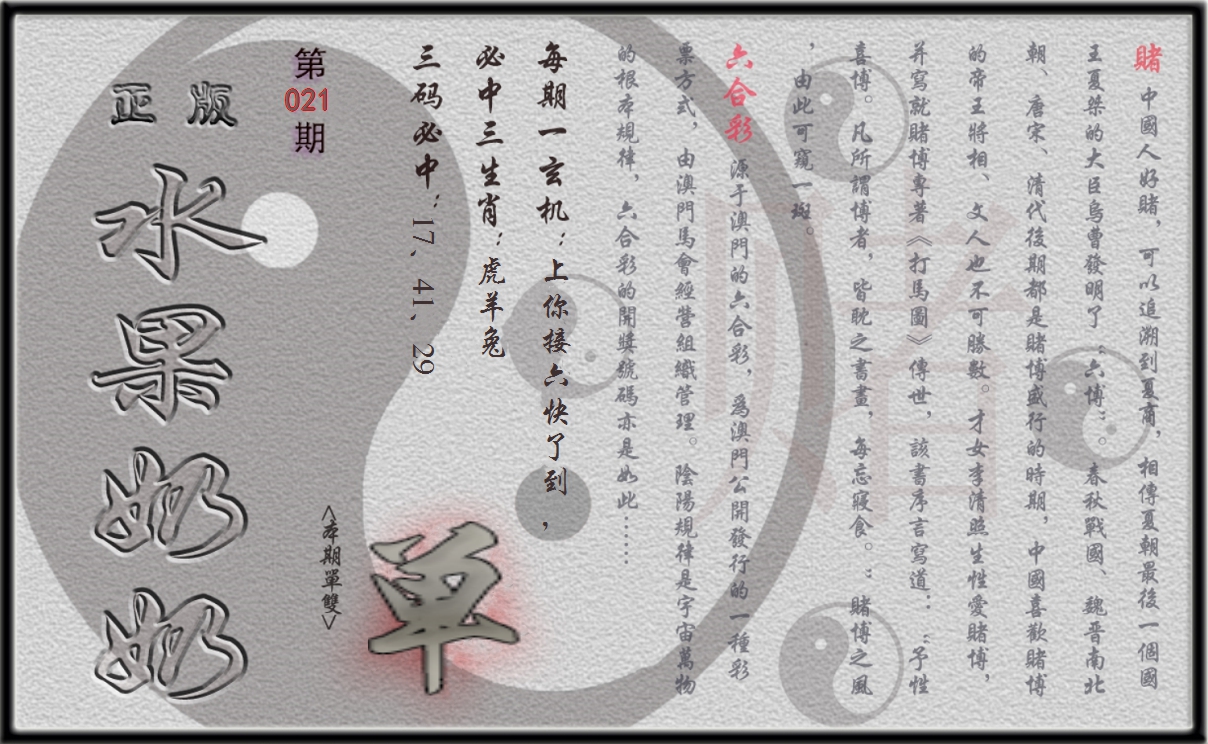 賭 中國人好賭，可以追溯到夏商，相傳夏朝最後一個國
王夏桀的大臣烏曹發明了“六博”。春秋戰國、魏晉南北
朝、唐宋、清代後期都是賭博盛行的時期，中國喜歡賭博
的帝王將相、文人也不可勝數。才女李清照生性愛賭博，
并寫就賭博專著《打馬圖》傳世，該書序言寫道：“予性
喜博。凡所謂博者，皆耽之晝晝，每忘寢食。：賭博之風
，由此可窺一斑。
六合彩 源于澳門的六合彩，爲澳門公開發行的一種彩
票方式，由澳門馬會經營組織管理。陰陽規律是宇宙萬物
的根本規律，六合彩的開獎號碼亦是如此……
每期一玄机：上你接六快了到，
必中三生肖：虎羊兔
三码必中：17、41、29
第021期
<本期單雙>
单
正版
水果奶奶